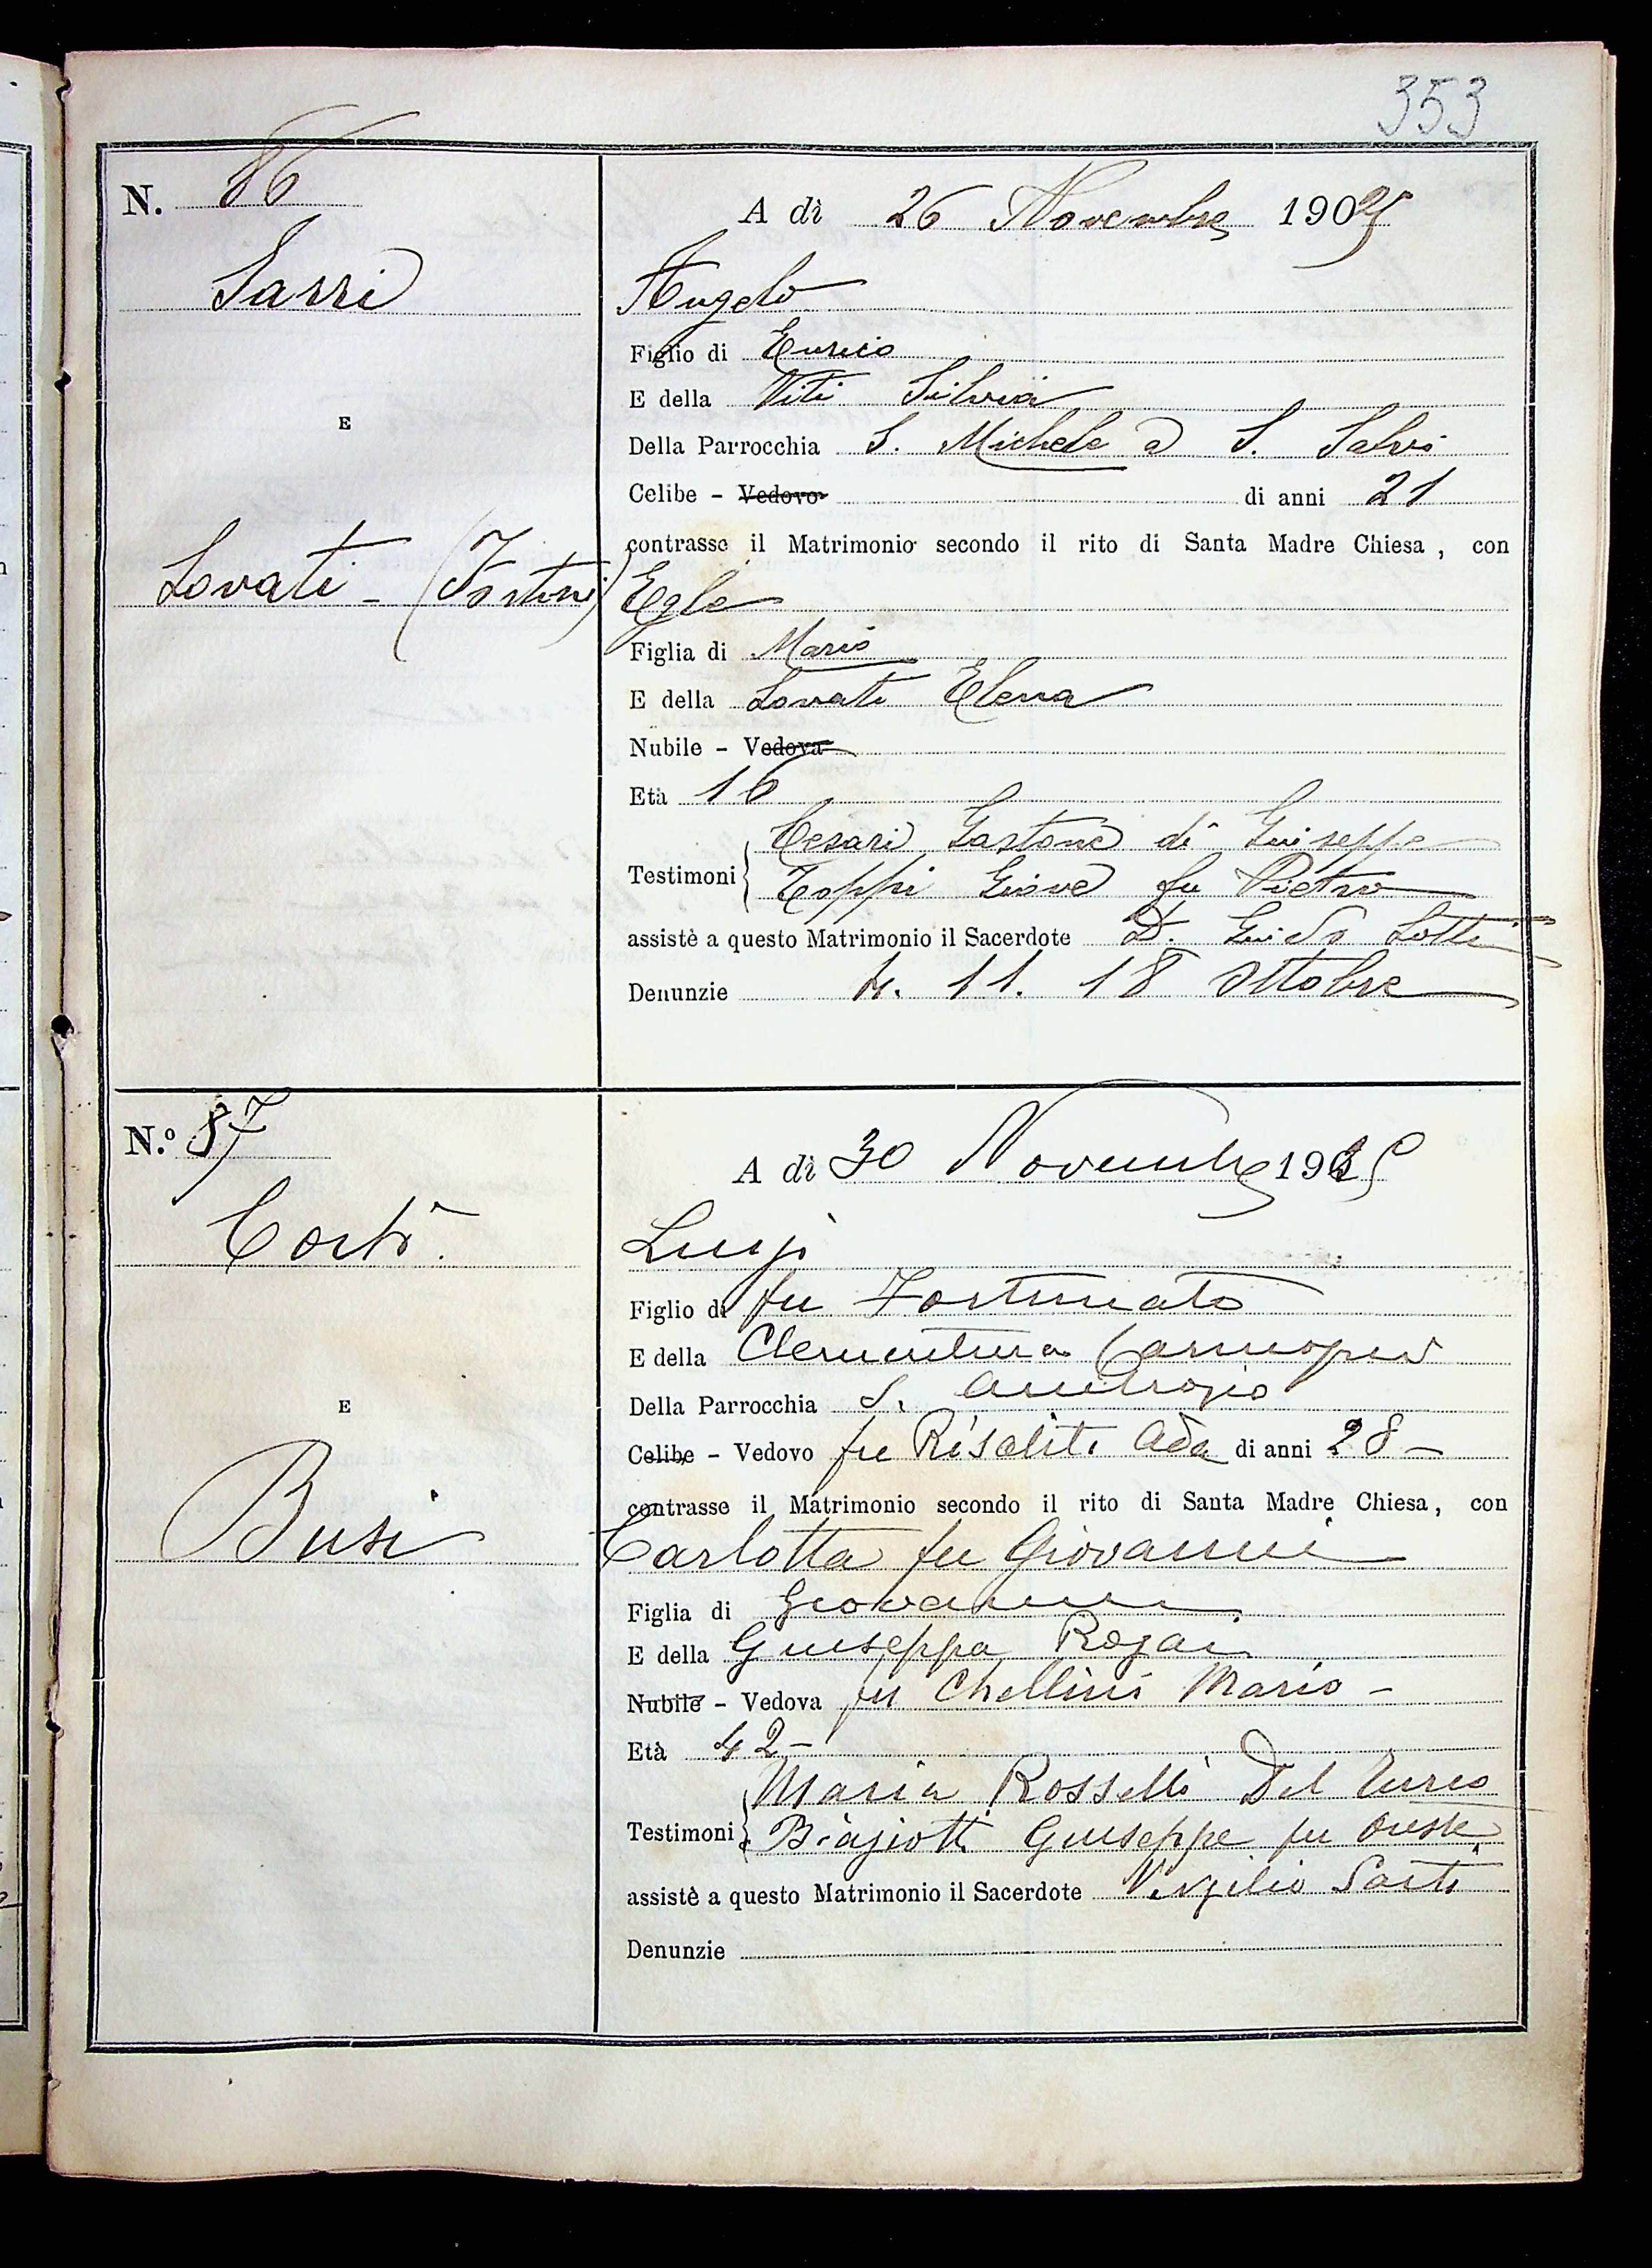 353
N. 86
A dì 26 Novembre 1925
Sarri
Angelo
Figlio di Enrico
E della Viti Silvia
E
Della Parrocchia S. Michele a S. Salvi
Celibe - Vedovo di anni 21
contrasse il Matrimonio secondo il rito di Santa Madre Chiesa, con
Lovati - (Fortini)
Egle
Figlia di Mario
E della Lovati Elena
Nubile - Vedova
Età 16
Cesari Gastone di Giuseppe
Testimoni
Zoppi Giove fu Pietro
assistè a questo Matrimonio il Sacerdote D. Guido Lotti
Denunzie 4. 11. 18 Ottobre
N.º 87
A dì 30 Novembre 1925
Corti
Luigi
Figlio di fu Fortunato
E della Clementina
E
Della Parrocchia S. Ambrogio
Celibe - Vedovo fu Risaliti Ada di anni 28 -
contrasse il Matrimonio secondo il rito di Santa Madre Chiesa, con
Busi
Carlotta fu Giovanni
Figlia di Giovanni
E della Giuseppa Rogai
Nubile - Vedova fu Chellini Mario -
Età 42 -
Maria Rosselli Del Turco
Testimoni
Biagiotti Giuseppe fu Oreste
assistè a questo Matrimonio il Sacerdote Virgilio Sarti
Denunzie